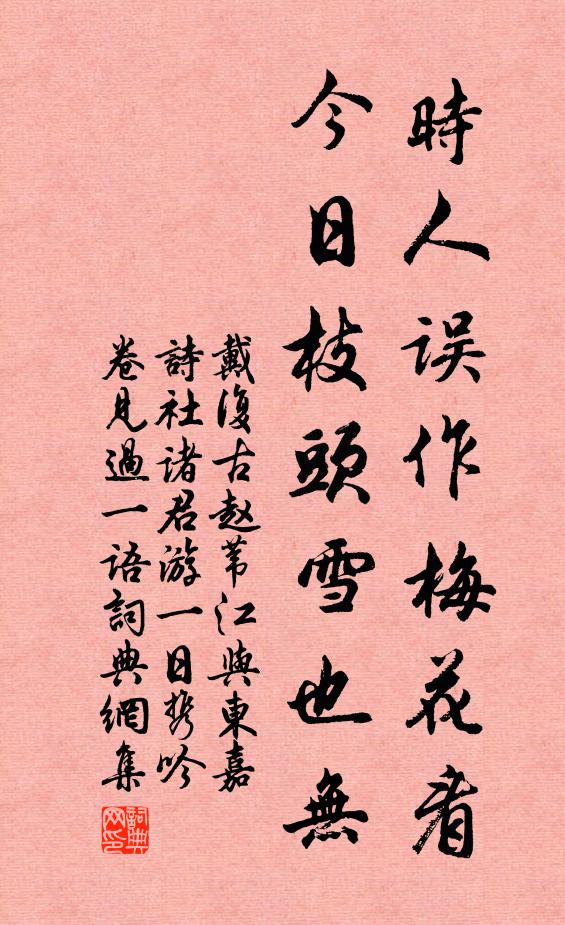 時人误作梅花看
今日枝頭雪也無
戴復古赵苇江與東嘉
詩社诸君游一日携吟
卷見過一语詞典網集
詞典网印